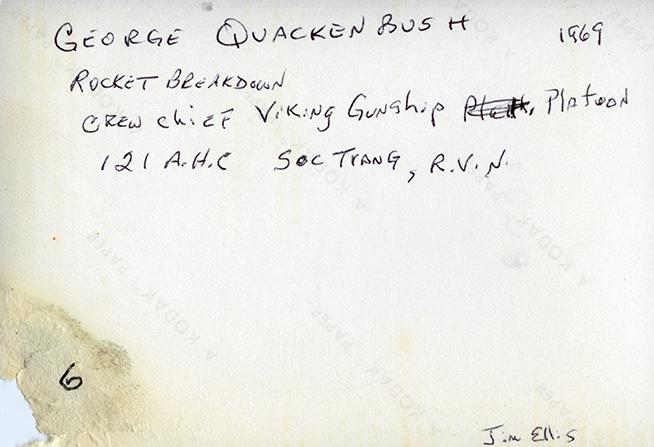 GEORGE QUACKENBUSH 1969
ROCKET BREAKDOWN
CREW ChiEF ViKiNg GuNShip PlatooN
121 A.H.C SOC TRANG, R.V.N.
A KODAK PAPER
A KODAK PAPER
6
Jim Ellis